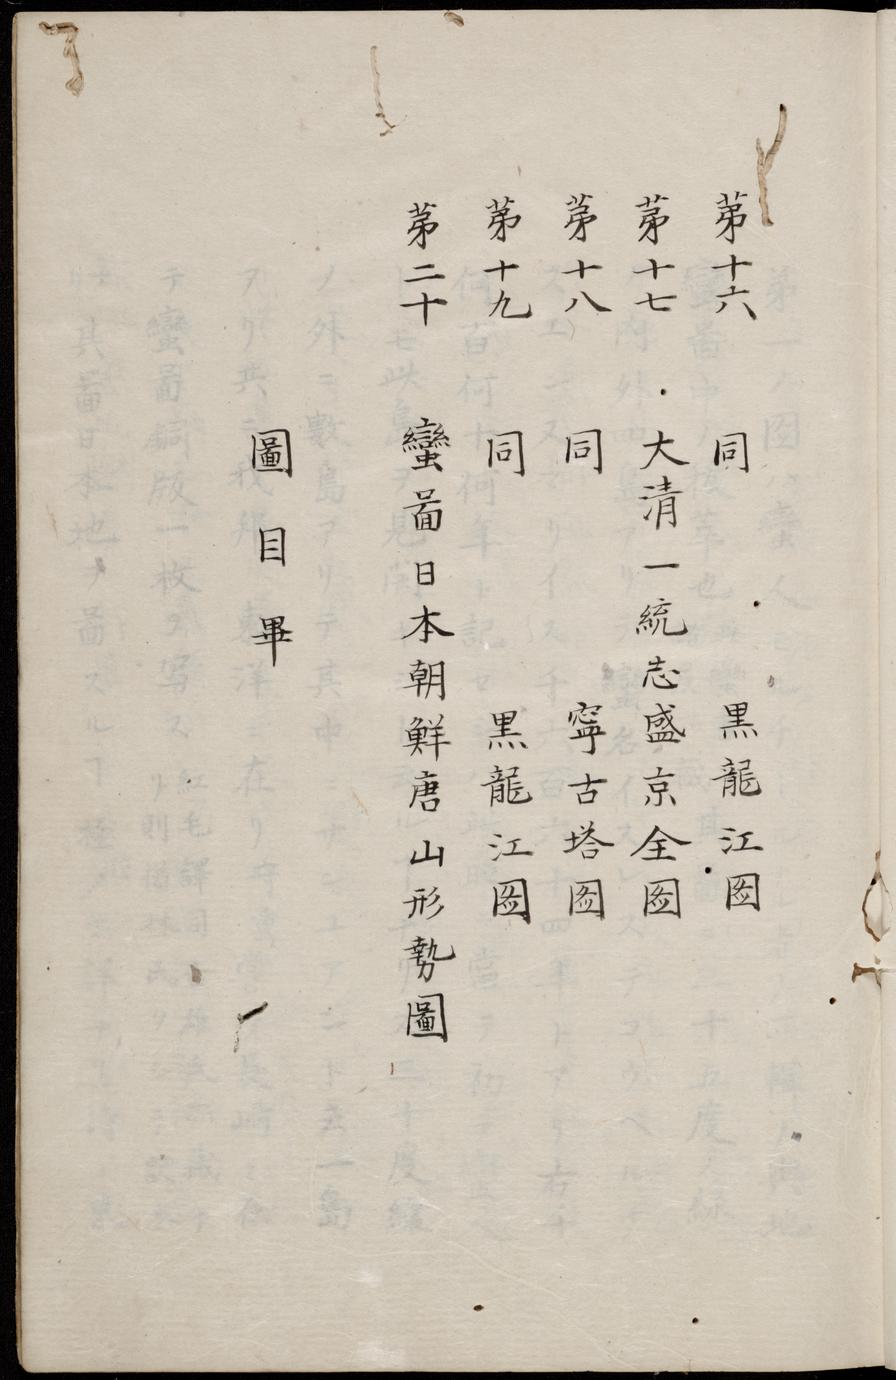 第十六 同 黒龍江图
第十七 大清一統志盛京全图
第十八 同 寧古塔图
第十九 同 黒龍江图
第二十 蠻啚日本朝鮮唐山形勢圖
圖目畢